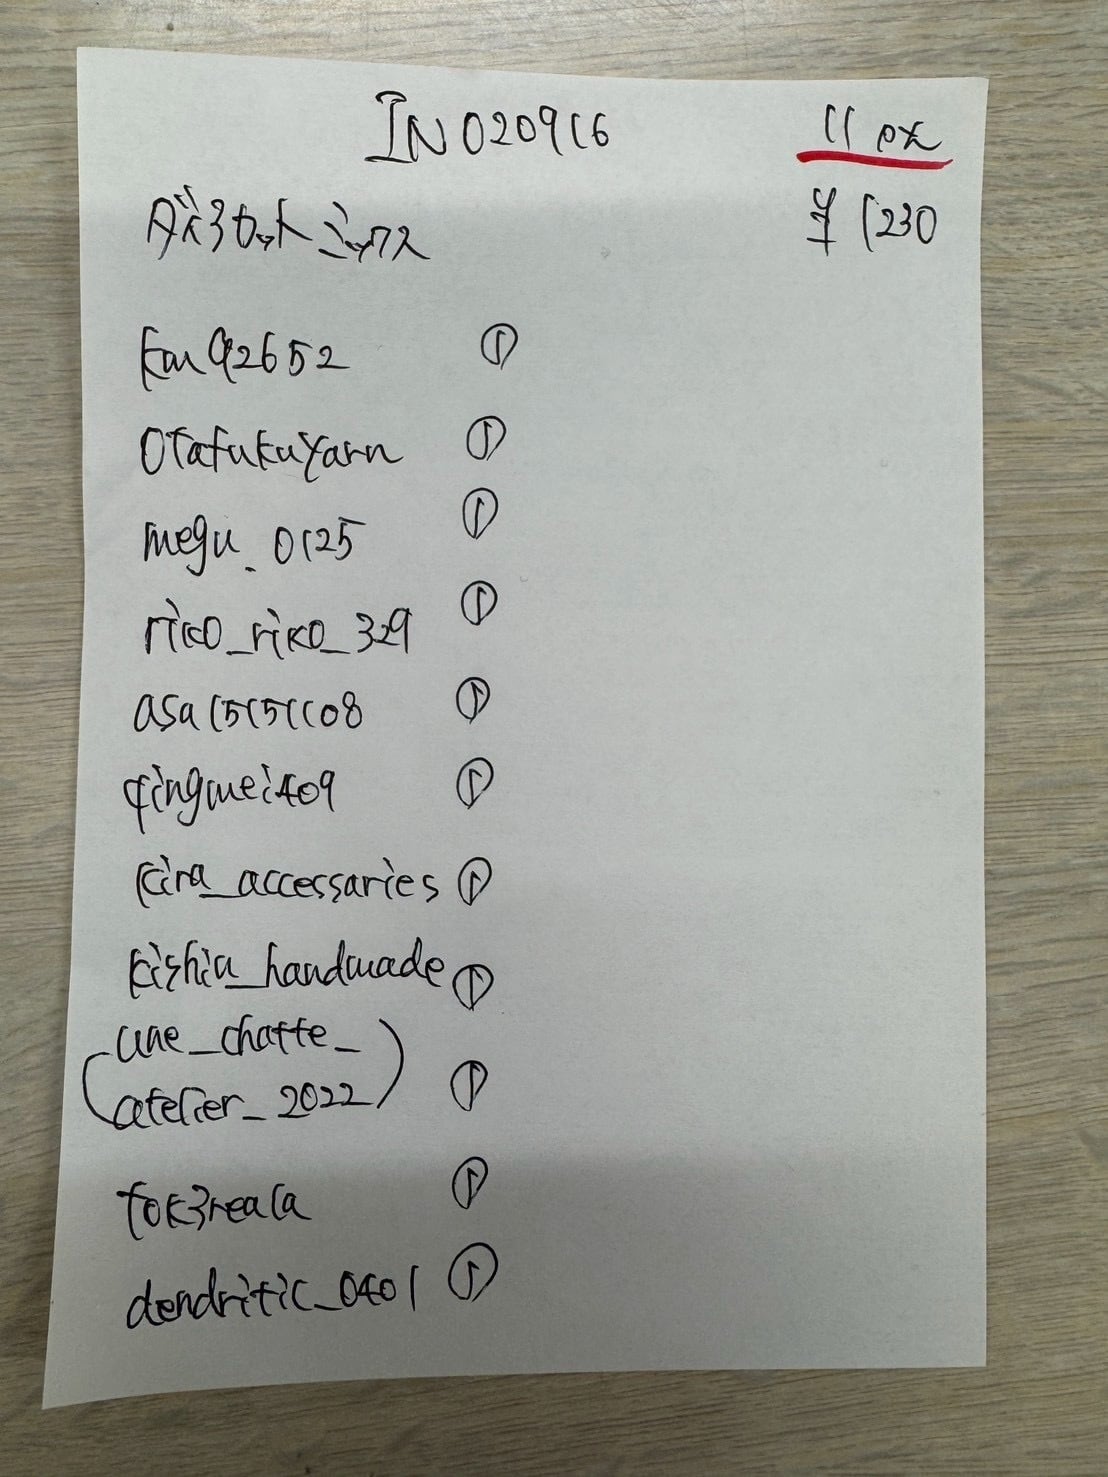 IN020916
11px
ダイヤカットミックス
¥1230
km92652 ①
otafukuyarn ①
megu._0125 ①
riko_riko_329 ①
asa15151108 ①
qingmei409 ①
kira_accessaries ①
kishiu_handmade ①
(une_chatte_
atelier_2022) ①
tok3reala ①
dendritic_0401 ①